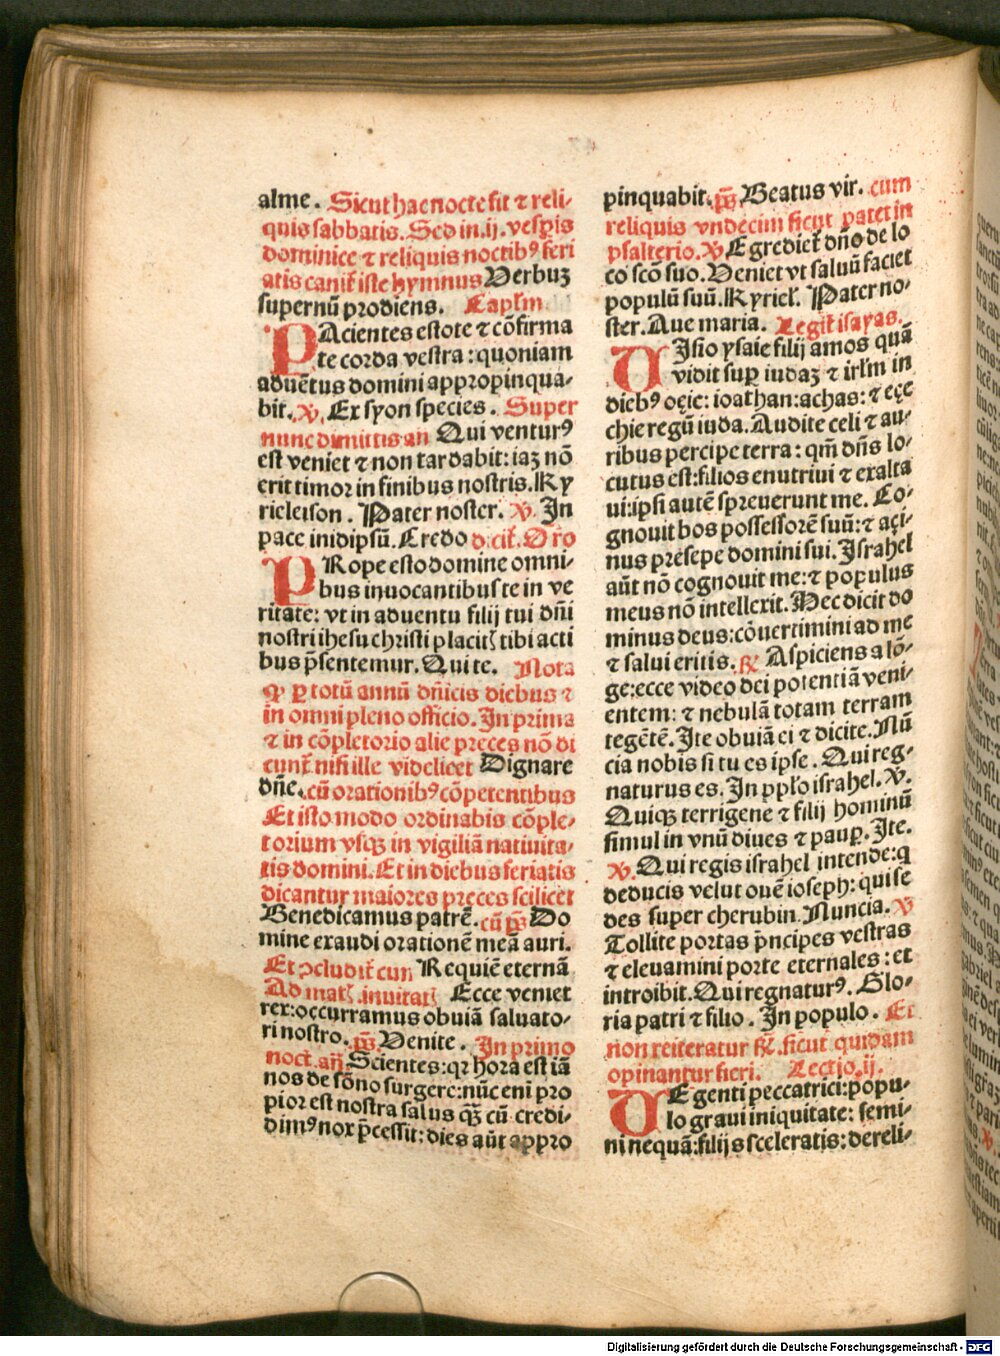 alme. Sicut hac nocte fit ⁊ reli-
quis sabbatis. Sed in .ij. vesp̲is
dominice ⁊ reliquis noctibꝰ feri
atis canit̃ iste hymnus Verbuꝫ
supernũ prodiens. Capłm.
PAcientes estote ⁊ cõfirma
te corda vestra: quoniam
aduẽtus domini appropinqua-
bit. ℣. Ex syon species. Super
nunc dimittis an̄ Qui venturꝰ
est veniet ⁊ non tardabit: iaꝫ nõ
erit timor in finibus nostris. Ky
rieleison. Pater noster. ℣. In
pace in idipsũ. Credo dicit̃. Or̃o
PRope esto domine omni-
bus inuocantibus te in ve
ritate: vt in aduentu filij tui dñi
nostri ihesu christi placit tibi acti
bus p̃sentemur. Qui te. Nota
ꝙ ꝑ totũ annũ dñicis diebus ⁊
in omni pleno officio. In prima
⁊ in cõpletorio alie preces nõ di
cunt̃ nisi ille videlicet Dignare
dñe. cũ orationibꝰ cõpetentibus
Et isto modo ordinabis cõple-
torium vsqꝫ in vigiliã natiuita-
tis domini. Et in diebus feriatis
dicantur maiores preces scilicet
Benedicamus patrẽ. cũ p̃s Do
mine exaudi orationẽ meã auri.
Et ꝯcludit̃ cun Requiẽ eternã
Ad mat̃. inuitat̃ Ecce veniet
rex: occurramus obuiã saluato-
ri nostro. p̃s Venite. In primo
noct. an̄ Scientes: qꝛ hora est iã
nos de sõno surgere: nũc eni pro
pior est nostra salus qꝫ cũ credi-
dimꝰ nox p̃cessit: dies aũt appro
pinquabit. p̃s Beatus vir. cum
reliquis vndecim sicut patet in
psalterio. ℣ Egrediet̃ dño de lo
co scõ suo. Veniet vt saluũ faciet
populũ suũ. Kyriel̃. Pater no-
ster. Aue maria. Legit̃ isayas.
VIsio ysaie filij amos quã
vidit sup̲ iudaꝫ ⁊ irłm in
diebꝰ oçie: ioathan: achas: ⁊ eçe
chie regũ iuda. Audite celi ⁊ au-
ribus percipe terra: qm̃ dñs lo-
cutus est: filios enutriui ⁊ exalta
ui: ipsi autẽ spreuerunt me. Co-
gnouit bos possessorẽ suũ: ⁊ açi-
nus presepe domini sui. Israhel
aũt nõ cognouit me: ⁊ populus
meus nõ intellexit. Hec dicit do
minus deus: cõuertimini ad me
⁊ salui eritis. ℟ Aspiciens a lõ-
ge: ecce video dei potentiã veni-
entem: ⁊ nebulã totam terram
tegẽtẽ. Ite obuiã ei ⁊ dicite. Nũ
cia nobis si tu es ipse. Qui reg-
naturus es. In pp̃lo israhel. ℣.
Quiqꝫ terrigene ⁊ filij hominũ
simul in vnũ diues ⁊ paup̲. Ite.
℣. Qui regis israhel intende: q
deducis velut ouẽ ioseph: qui se
des super cherubin. Nuncia. ℣
Tollite portas p̃ncipes vestras
⁊ eleuamini porte eternales: et
introibit. Qui regnaturꝰ. Glo-
ria patri ⁊ filio. In populo. Et
non reiteratur ℟. sicut quidam
opinantur fieri. Lectio .ij.
VE genti peccatrici: popu-
lo graui iniquitate: semi-
ni nequã: filijs sceleratis: dereli-
Digitalisierung gefördert durch die Deutsche Forschungsgemeinschaft - DFG